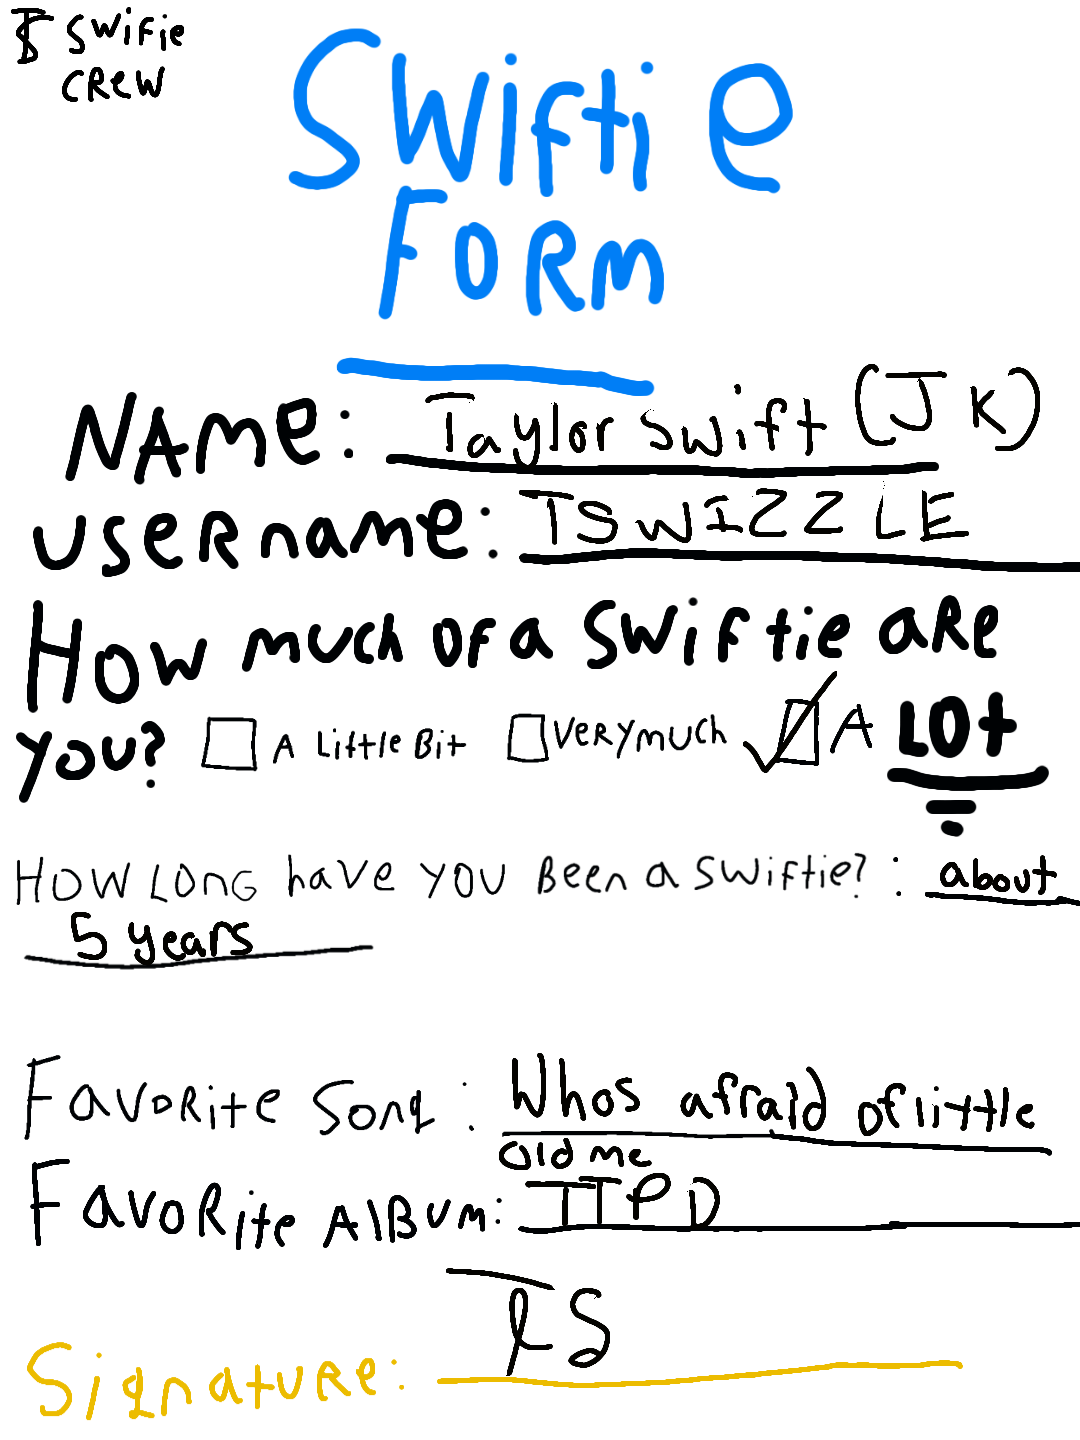 TS Swifie
Crew
Swiftie
Form
Name: Taylor Swift (JK)
Username: TSWIZZLE
How much of a Swiftie are
you? A Little Bit Very much A LOt
How Long have you Been a Swiftie? : about
5 years
Favorite Song : Whos afraid of little
old me
Favorite Album: TTPD
TS
Signature: